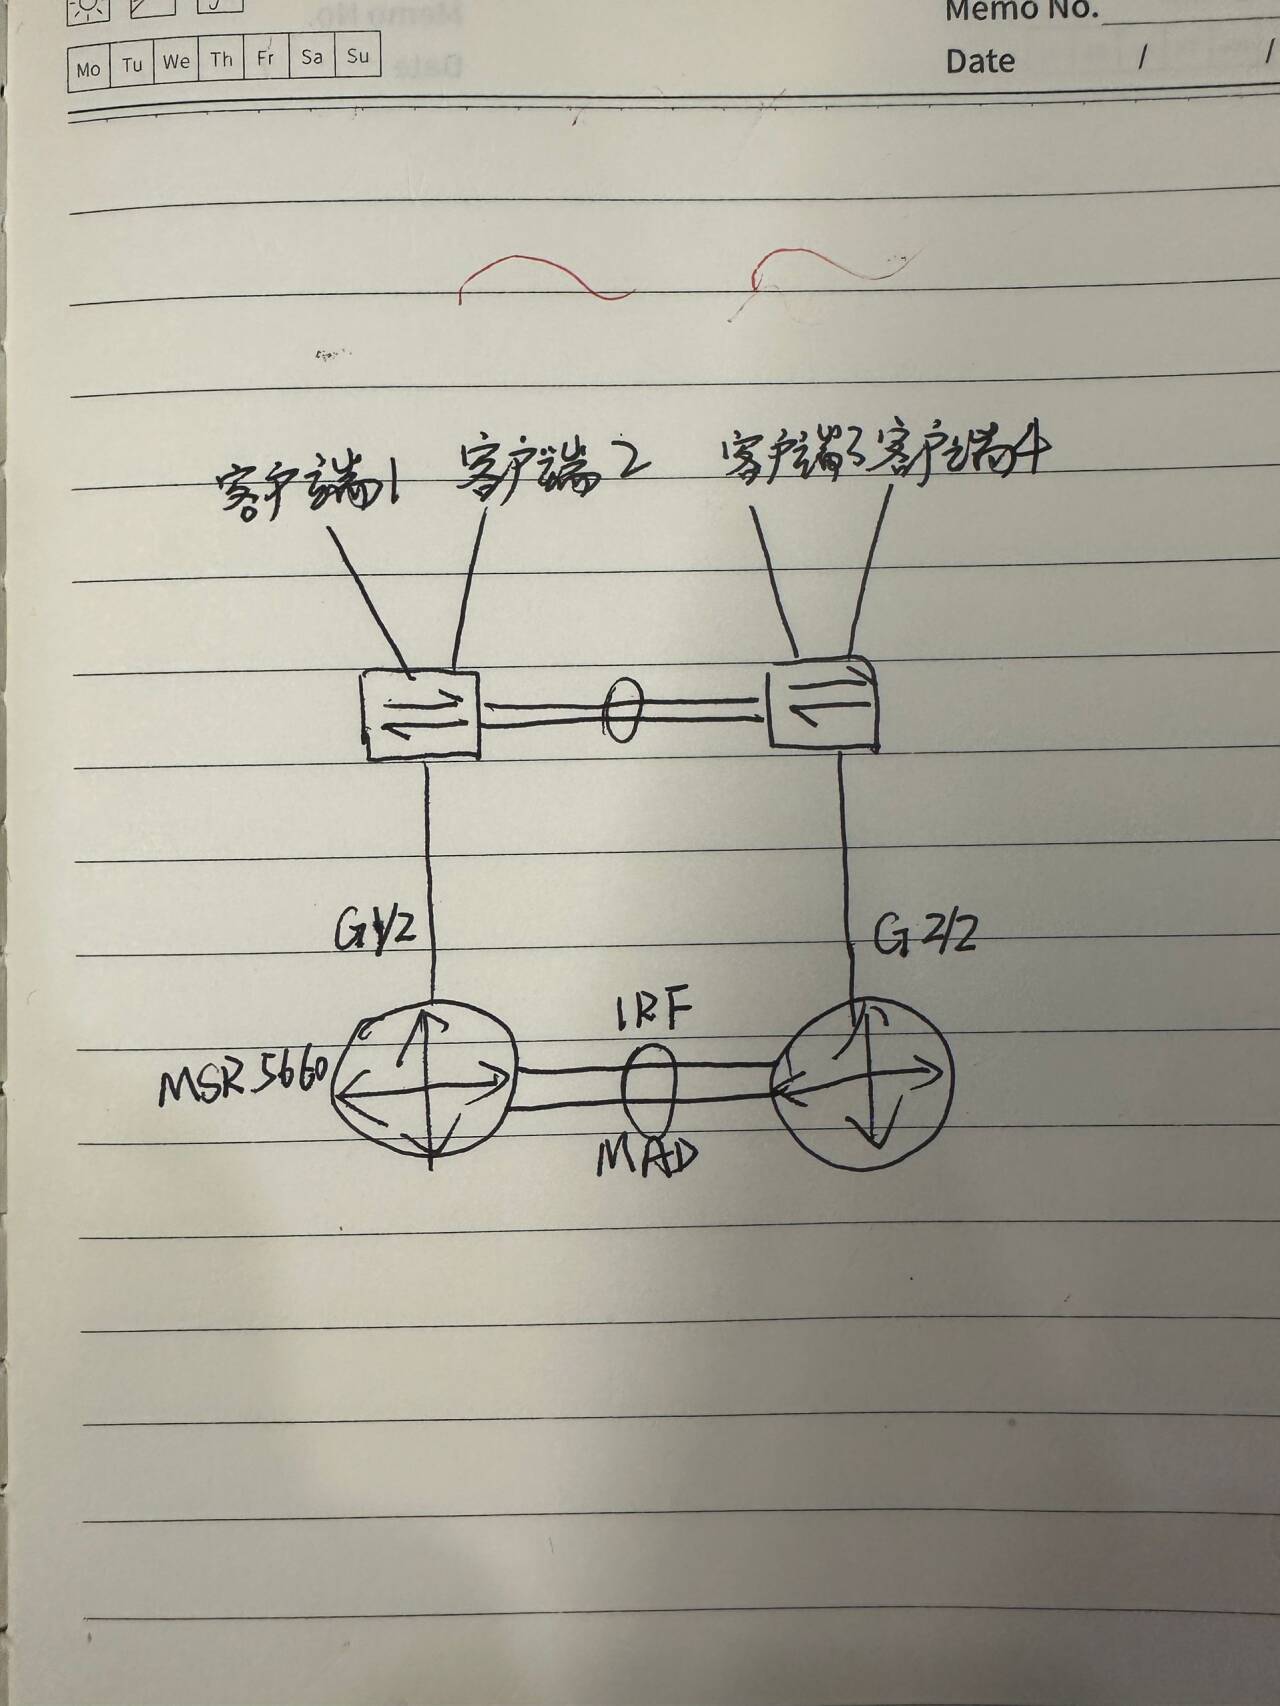 Memo No.
Date / /
Mo Tu We Th Fr Sa Su
客户端1 客户端2 客户端3 客户端4
G1/2 G2/2
IRF
MSR5660
MAD